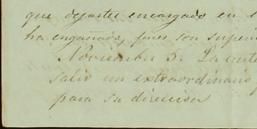 que dejastes encargado en s
ha engañado, pues son superio
Noviembre 5. La corte
salir un extraordinario
para su direccion